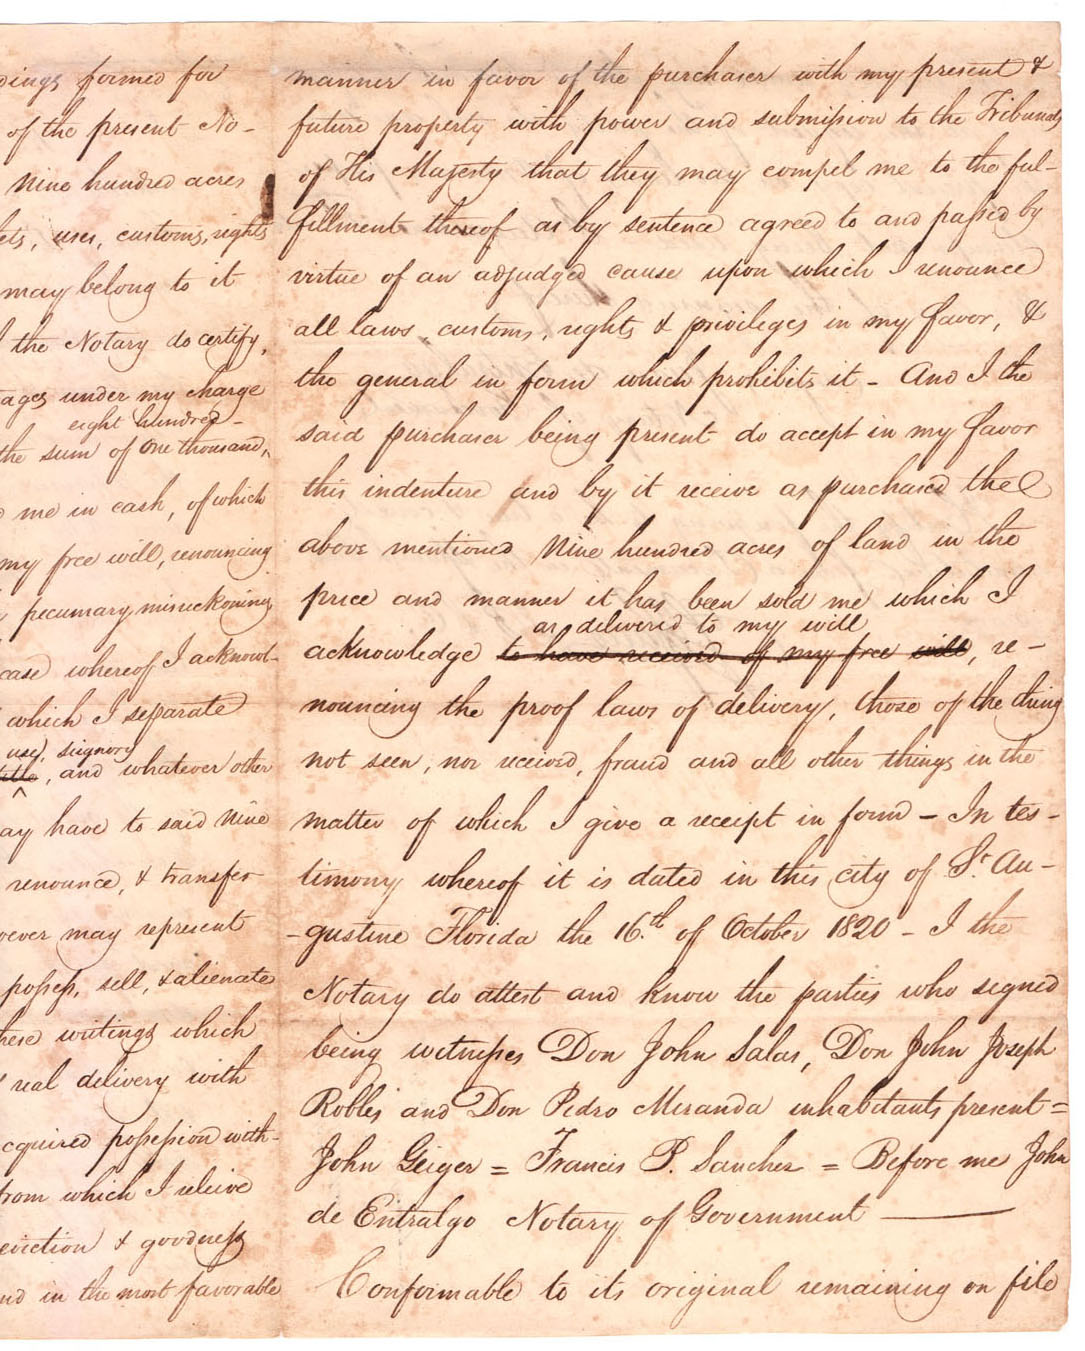 dings formed for
of the present No-
Nine hundred acres
ets, uses, customs, rights
may belong to it
I the Notary do certify,
ages under my charge
eight hundred -
the sum of One thousand,
me in cash, of which
my free will, renouncing
pecuniary misreckoning
case whereof I acknowl-
which I separate
use, signory
title, and whatever other
ay have to said Nine
renounce, & transfer
oever may represent
possess, sell, & alienate
hese writings which
real delivery with
cquired possession with-
from which I releive
eviction & goodness
nd in the most favorable
manner in favor of the purchaser with my present &
future property with power and submission to the Tribunals
of His Majesty that they may compel me to the ful-
fillment thereof as by sentence agreed to and passed by
virtue of an adjudged cause upon which I renounce
all laws, customs, rights & privileges in my favor, &
the general in form which prohibits it - And I the
said purchaser being present do accept in my favor
this indenture and by it receive as purchased the
above mentioned Nine hundred acres of land in the
price and manner it has been sold me which I
as delivered to my will
acknowledge to have received of my free will, re-
nouncing the proof laws of delivery, those of the thing
not seen, nor received, fraud and all other things in the
matter of which I give a receipt in form - In tes-
timony whereof it is dated in this city of St. Au-
-gustine Florida the 16.th of October 1820 - I the
Notary do attest and know the parties who signed
being witnesses Don John Salas, Don John Joseph
Robles and Don Pedro Meranda inhabitants present =
John Geiger = Francis P. Sanchez = Before me John
de Entralgo Notary of Government ———
Conformable to its original remaining on file